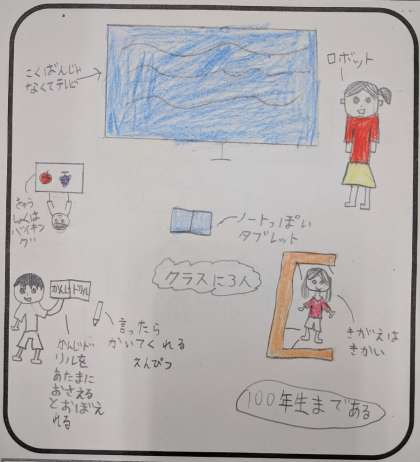 こくばんじゃ
なくてテレビ
ロボット
きゅう
しょくは
バイキン
グ
ノートっぽい
タブレット
クラスに3人
かんじドリル
言ったら
かいてくれる
えんぴつ
かんじド
リルを
あたまに
おさえる
とおぼえ
れる
きがえは
きかい
100年生まである